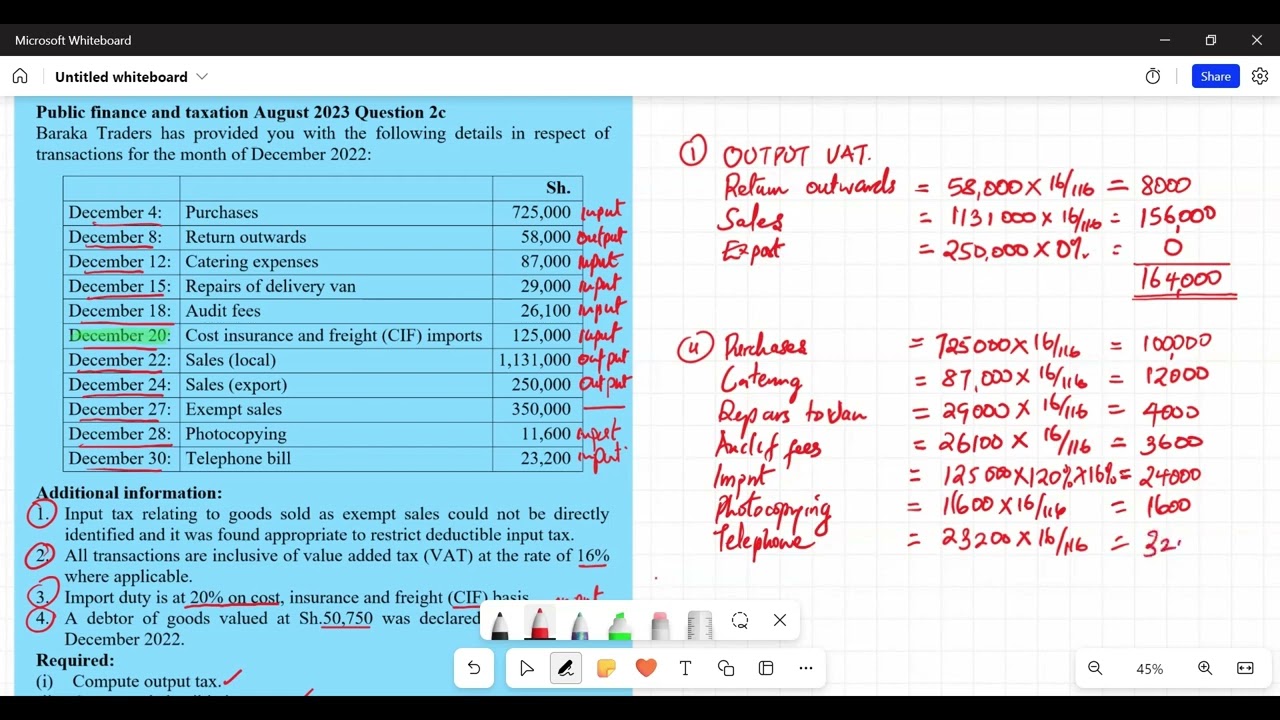 Microsoft Whiteboard
Untitled whiteboard
Share
Public finance and taxation August 2023 Question 2c
Baraka Traders has provided you with the following details in respect of
transactions for the month of December 2022:
Sh.
December 4: Purchases 725,000 input
December 8: Return outwards 58,000 output
December 12: Catering expenses 87,000 input
December 15: Repairs of delivery van 29,000 input
December 18: Audit fees 26,100 input
December 20: Cost insurance and freight (CIF) imports 125,000 input
December 22: Sales (local) 1,131,000 output
December 24: Sales (export) 250,000 output
December 27: Exempt sales 350,000
December 28: Photocopying 11,600 input
December 30: Telephone bill 23,200 input
Additional information:
1. Input tax relating to goods sold as exempt sales could not be directly
identified and it was found appropriate to restrict deductible input tax.
2. All transactions are inclusive of value added tax (VAT) at the rate of 16%
where applicable.
3. Import duty is at 20% on cost, insurance and freight (CIF) basis.
4. A debtor of goods valued at Sh.50,750 was declared
December 2022.
Required:
(i) Compute output tax.
① OUTPUT VAT.
Return outwards = 58,000 X 16/116 = 8000
Sales = 1131000 x 16/116 = 156,000
Export = 250,000 X 0% = 0
164,000
Purchases = 725000 X 16/116 = 100,000
Catering = 87,000 X 16/116 = 12000
Repairs to van = 29000 X 16/116 = 4000
Audit fees = 26100 X 16/116 = 3600
Import = 125000X120%X16% = 24000
Photocopying = 11600 X 16/116 = 1600
Telephone = 23200 X 16/116 = 32
45%